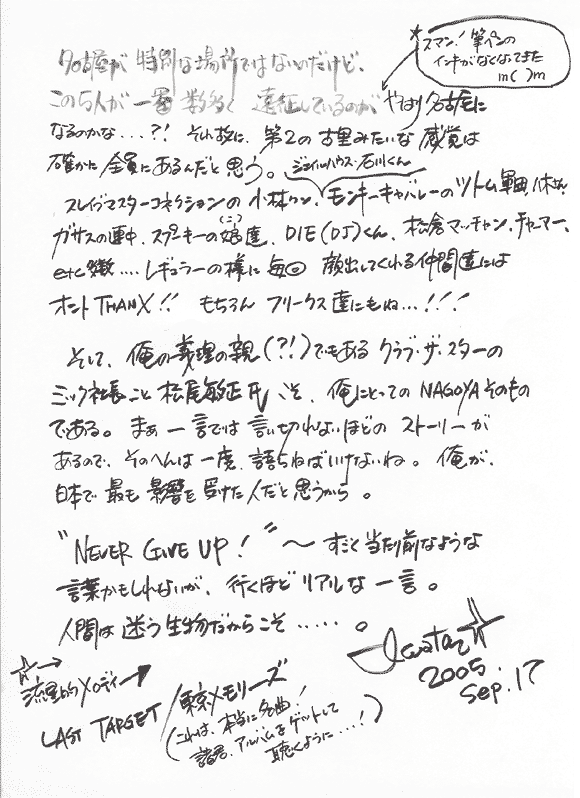 スマン! 筆ペンの
インキがなくなってきた
m( )m
名古屋が特別な場所ではないんだけど、
この5人が一番数多く遠征しているのが やはり名古屋に
なるのかな...?! それ故に、第2の古里みたいな感覚は
確かに全員にあるんだと思う。
ジェイルハウス・石川くん
スレイヴマスターコネクションの小林クン、モンキーキャバレーのツトム軍曹、
ガサスの連中、スプーキーの娘(こ)達、DIE(DJ)くん、松倉マッチャン、チャーマー、
etc 数.... レギュラーの様に毎回 顔出してくれる仲間達には
ホント THANX!! もちろん フリークス達にもね...!!!
そして、俺の義理の親(?!)でもある クラブ・ザ・スターの
ミック社長こと 松尾敏正氏こそ、俺にとっての NAGOYA そのもの
である。まぁ 一言では言い切れないほどの ストーリーが
あるので、そのへんは一度、語らねばいけないね。俺が、
日本で最も影響を受けた人だと思うから。
"NEVER GIVE UP!" ～ すごく当たり前なような
言葉かもしれないが、行くほどリアルな一言。
人間は迷う生物だからこそ.....。
2005.
Sep. 17
☆→ 流星的メロディー→
LAST TARGET / 東京メモリーズ
(これは、本当に名曲!
諸君、アルバムをゲットして
聴くように...!)